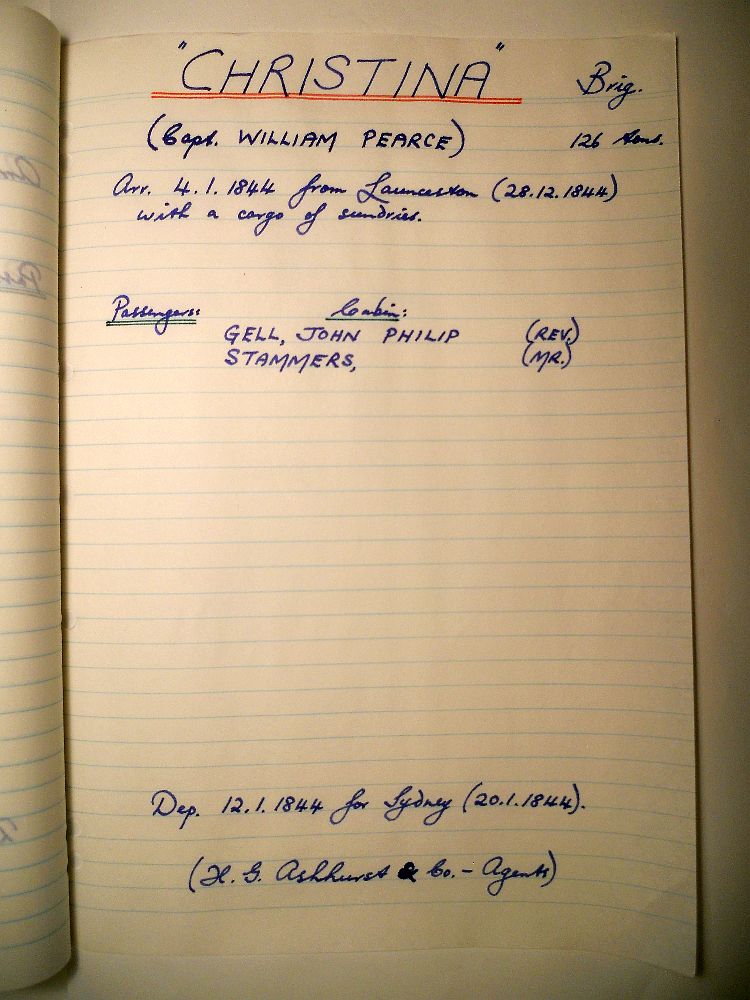 "CHRISTINA" Brig.
(Capt. WILLIAM PEARCE) 126 tons.
Arr. 4.1.1844 from Launceston (28.12.1844)
with a cargo of sundries.
Passengers: Cabin:
GELL, JOHN PHILIP (REV.)
STAMMERS, (MR.)
Dep. 12.1.1844 for Sydney (20.1.1844).
(H. G. Ashhurst & Co. - Agents)